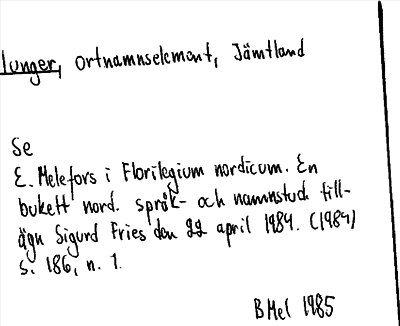 lunger, ortnamnselement, Jämtland
Se
E. Melefors i Florilegium nordicum. En
bukett nord. språk- och namnstud. till-
ägn. Sigurd Fries den 22 april 1984. (1984)
s. 186, n. 1.
BMel 1985